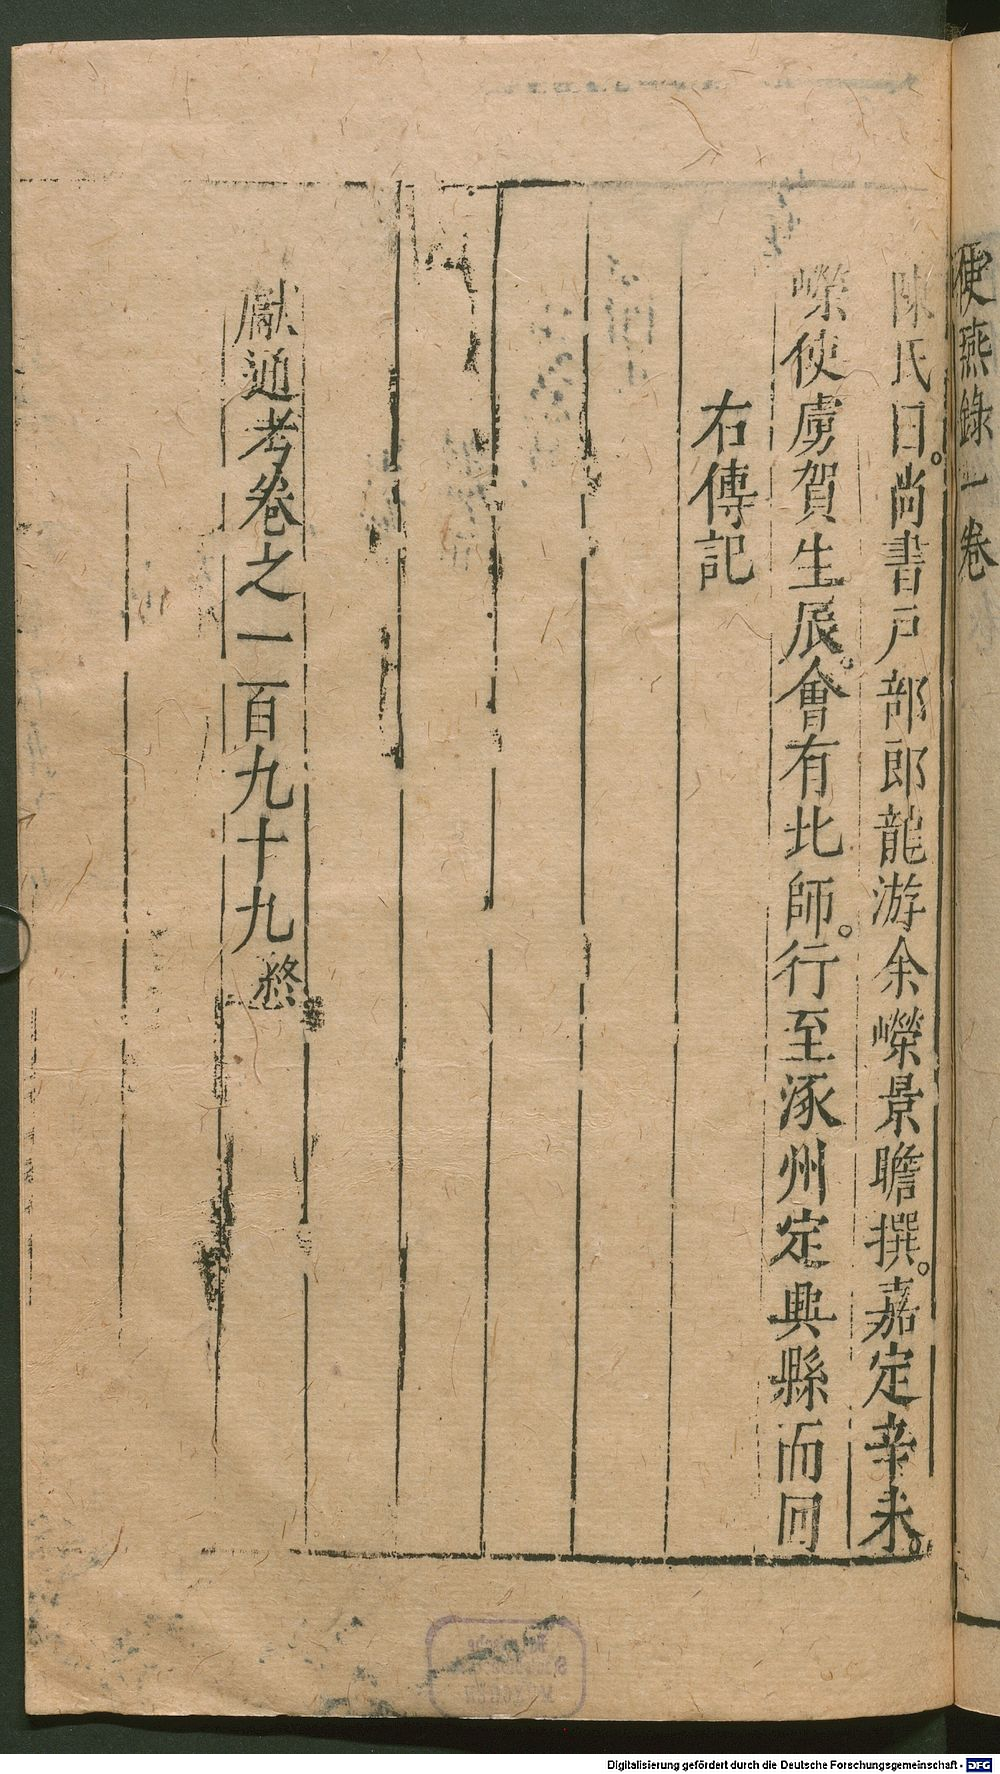 使燕錄一卷
陳氏曰。尚書戸部郎龍游余嶸景瞻撰。嘉定辛未。
嶸使虜賀生辰。會有北師。行至涿州定興縣而回
右傳記
獻通考卷之一百九十九終
Digitalisierung gefördert durch die Deutsche Forschungsgemeinschaft - DFG